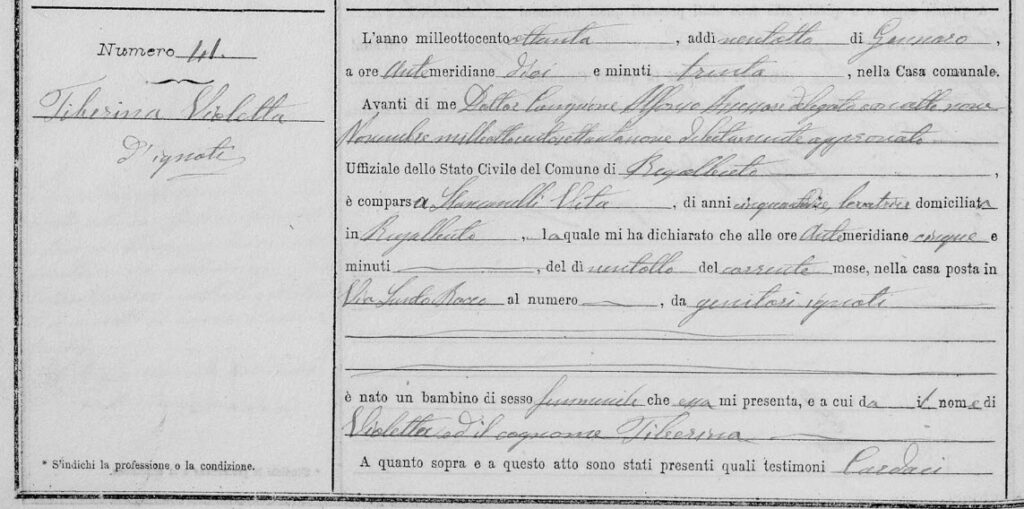 Numero 41.
Tiberina Violetta
d'ignoti
* S'indichi la professione o la condizione.
L'anno milleottocentottanta, addì ventotto di Gennaro,
a ore Antemeridiane dieci e minuti trenta, nella Casa comunale.
Avanti di me Dottor Alfonso Assessore delegato con atto nove
Novembre milleottocentosettantanove debitamente approvato
Uffiziale dello Stato Civile del Comune di Regalbuto,
è comparsa Stancanelli Vita, di anni levatrice domiciliata
in Regalbuto, la quale mi ha dichiarato che alle ore Antemeridiane cinque e
minuti, del dì ventotto del corrente mese, nella casa posta in
Via Santo Rocco al numero, da genitori ignoti
è nato un bambino di sesso femminile che essa mi presenta, e a cui dà il nome di
Violetta ed il cognome Tiberina
A quanto sopra e a questo atto sono stati presenti quali testimoni Cardaci